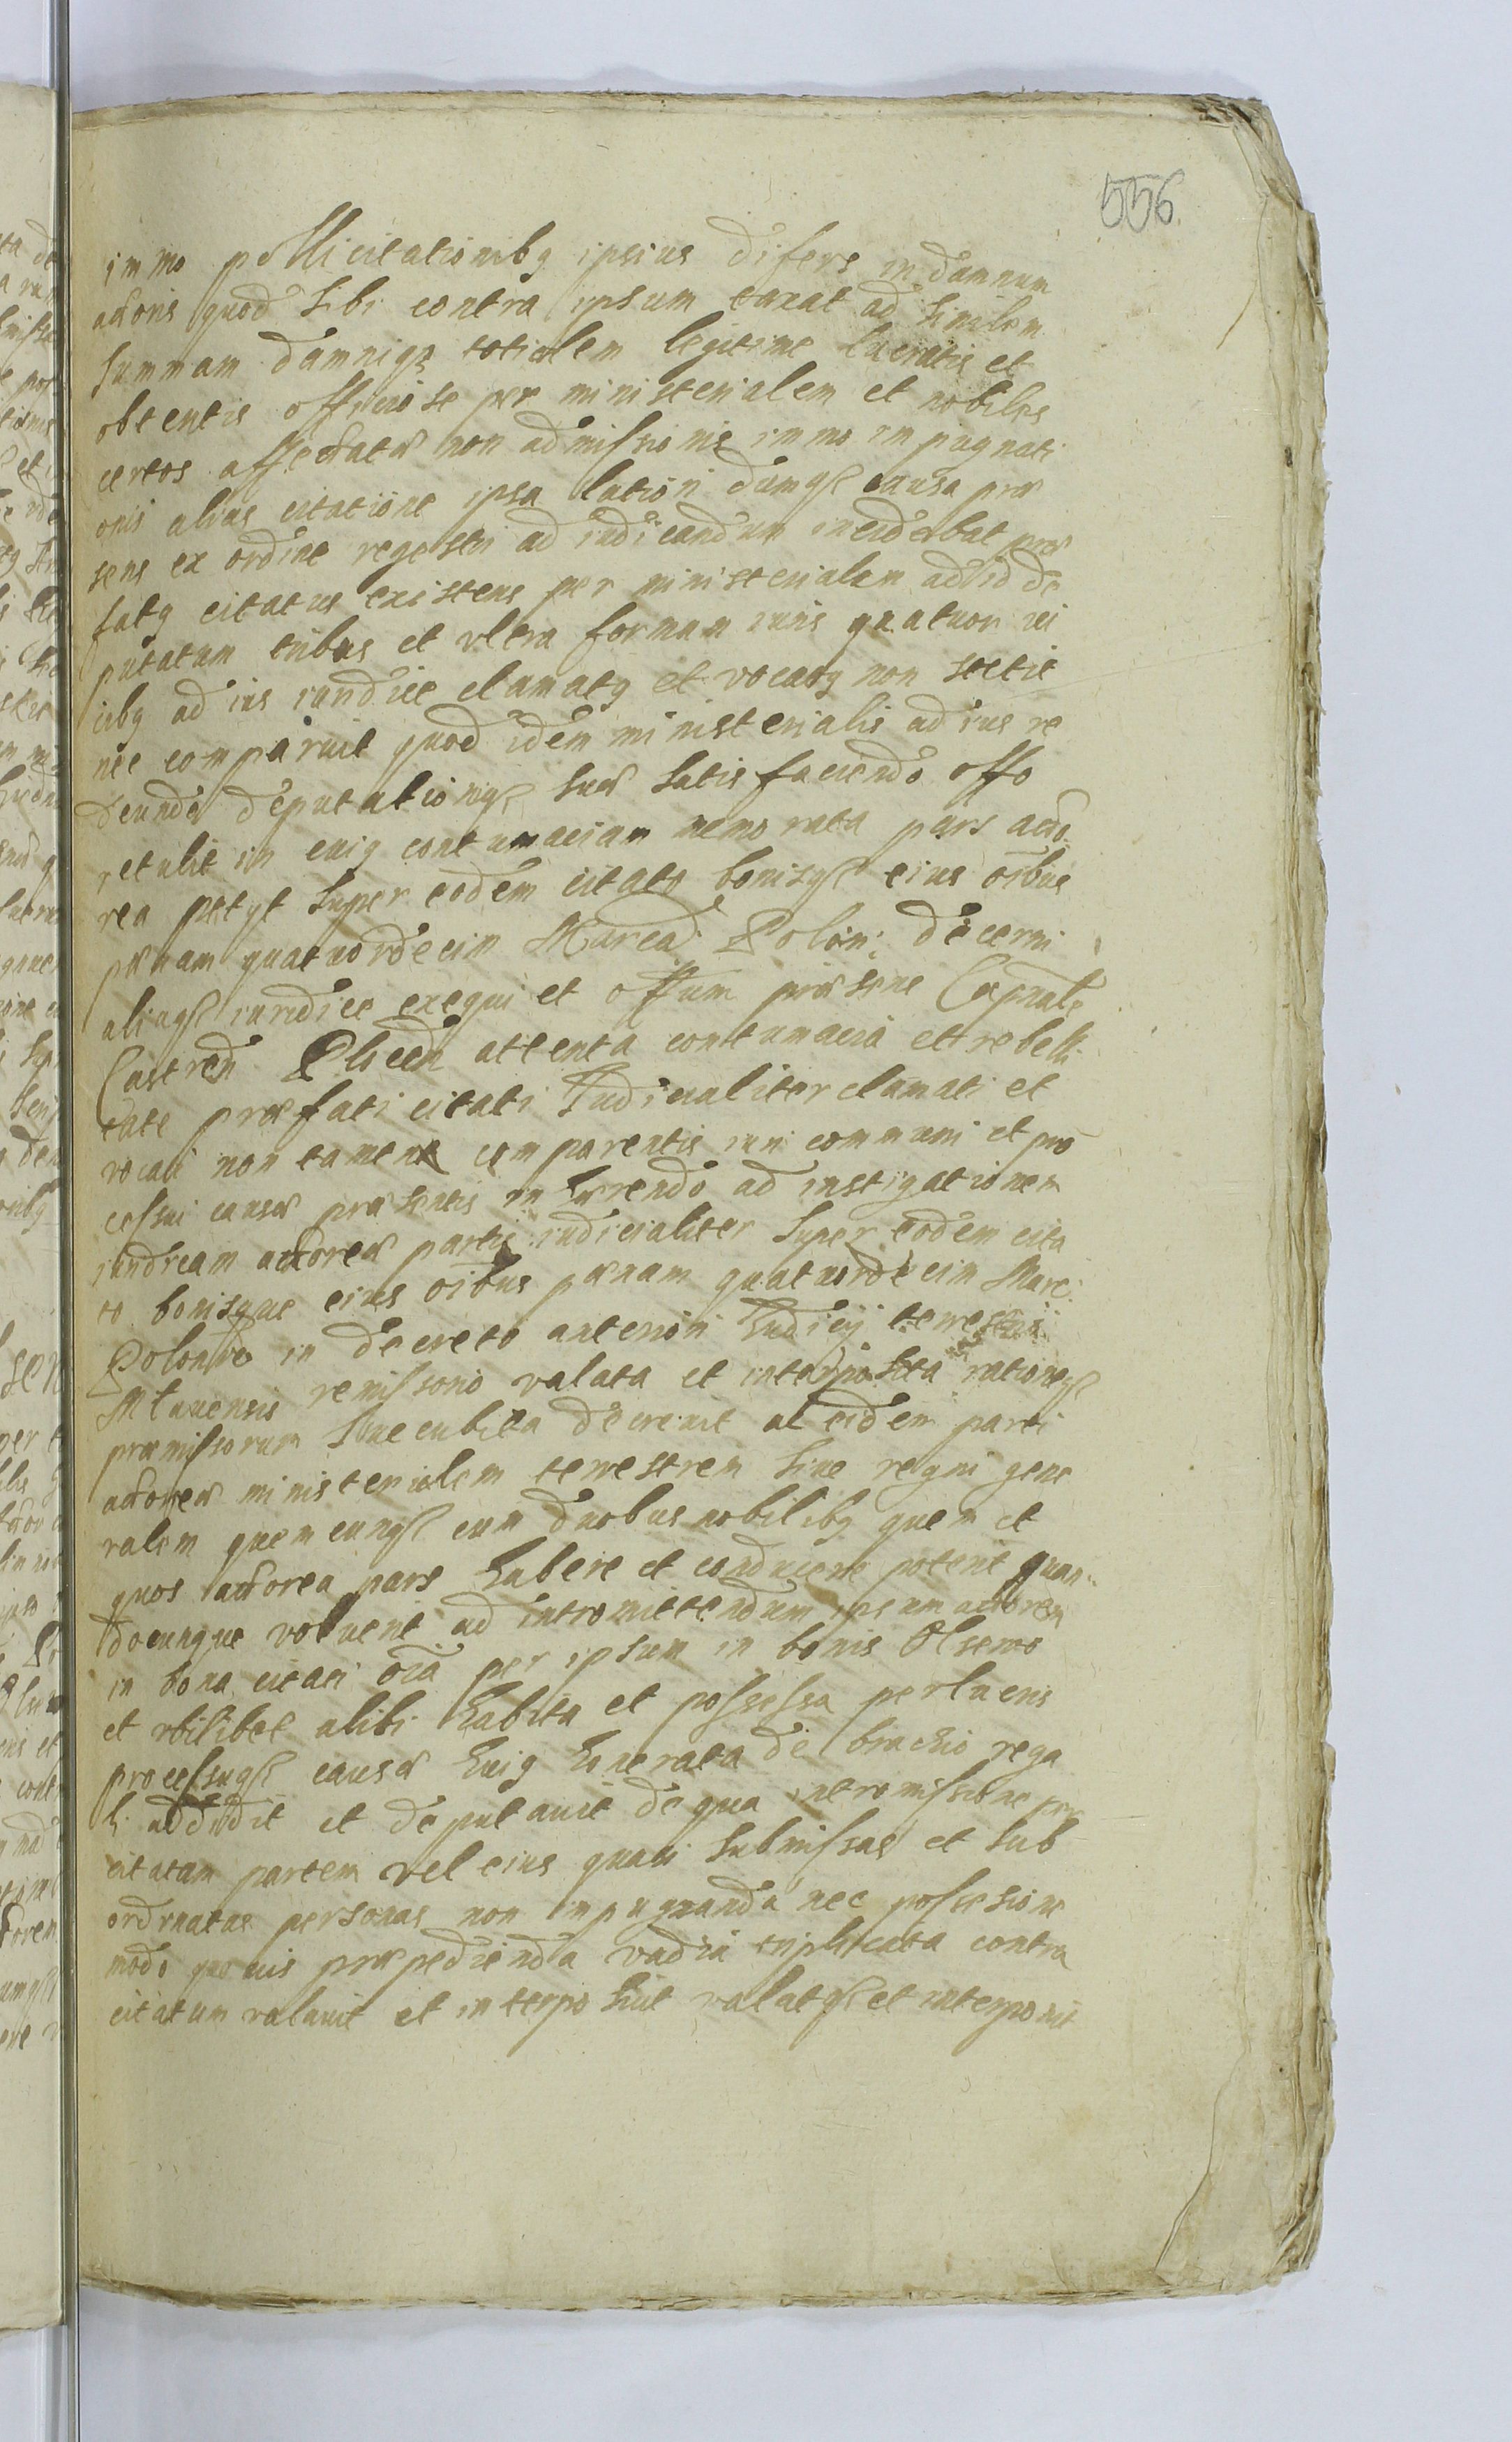 556
immo pollicitationibq ipsius difers in damnum
actoris quod sibi contra ipsum taxat ad similem
summam damniqz totidem legitime lucratis et
obtentis officiose per ministerialem et nobiles
certos affectatæ non admissionis immo impugnati
onis alias citatione ipsa latiori dumqz causa præ
sens ex ordine regestri ad iudicandum incidebat præ
fatq citatus existens per ministerialem ad id de
putatum tribus et vltra formam iuris quatuor vi
cibq ad ius iuridice clamatq et vocatq non stetit
nec comparuit quod idem ministerialis ad ius re
deundo deputationiqz suæ satisfaciendo offo
retulit in cuiq contumaciam memorata pars acto
rea petyt super eodem citato bonisqz eius oibus
pænam quatuordecim Marcar Poloni decerni
aliaqz iuridice exequi et offium præsens Capnale
Castren Plocen attenta contumacia et rebelli
tate præfati citati Judicialiter clamati et
vocati non tamen comparentis iuri communi et pro
cessui causæ præsentis inhærendo ad instigationem
iuridicam actoreæ partis iudicialiter super eodem cita
to bonisque eius oibus pænam quatuordecim Marc
Polon in decreto anteriori Iudicy terrestris
Mlauensis remissorio valata et interposita rationeqz
præmissorum succubita decreuit ac eidem parti
actoreæ ministerialem terrestrem siue regni gene
ralem quemcunqz cum duobus nobilibq quem et
quos actorea pars habere et conducere poterit quan
docunque voluerit ad intromittendum ipsum actorem
in bona citati oia per ipsum in bonis Olsewo
et vbilibet alibi habita et possessa per lucris
processuqz causæ huiq honerata de brachio rega
li addidit et deputauit de qua intromissione per
citatam partem vel eius quasi submissas et sub
ordinatas personas non impugnanda nec possessione
modo quouis præpedienda vadia triplicata contra
citatum valauit et interposuit valatqz et interponit